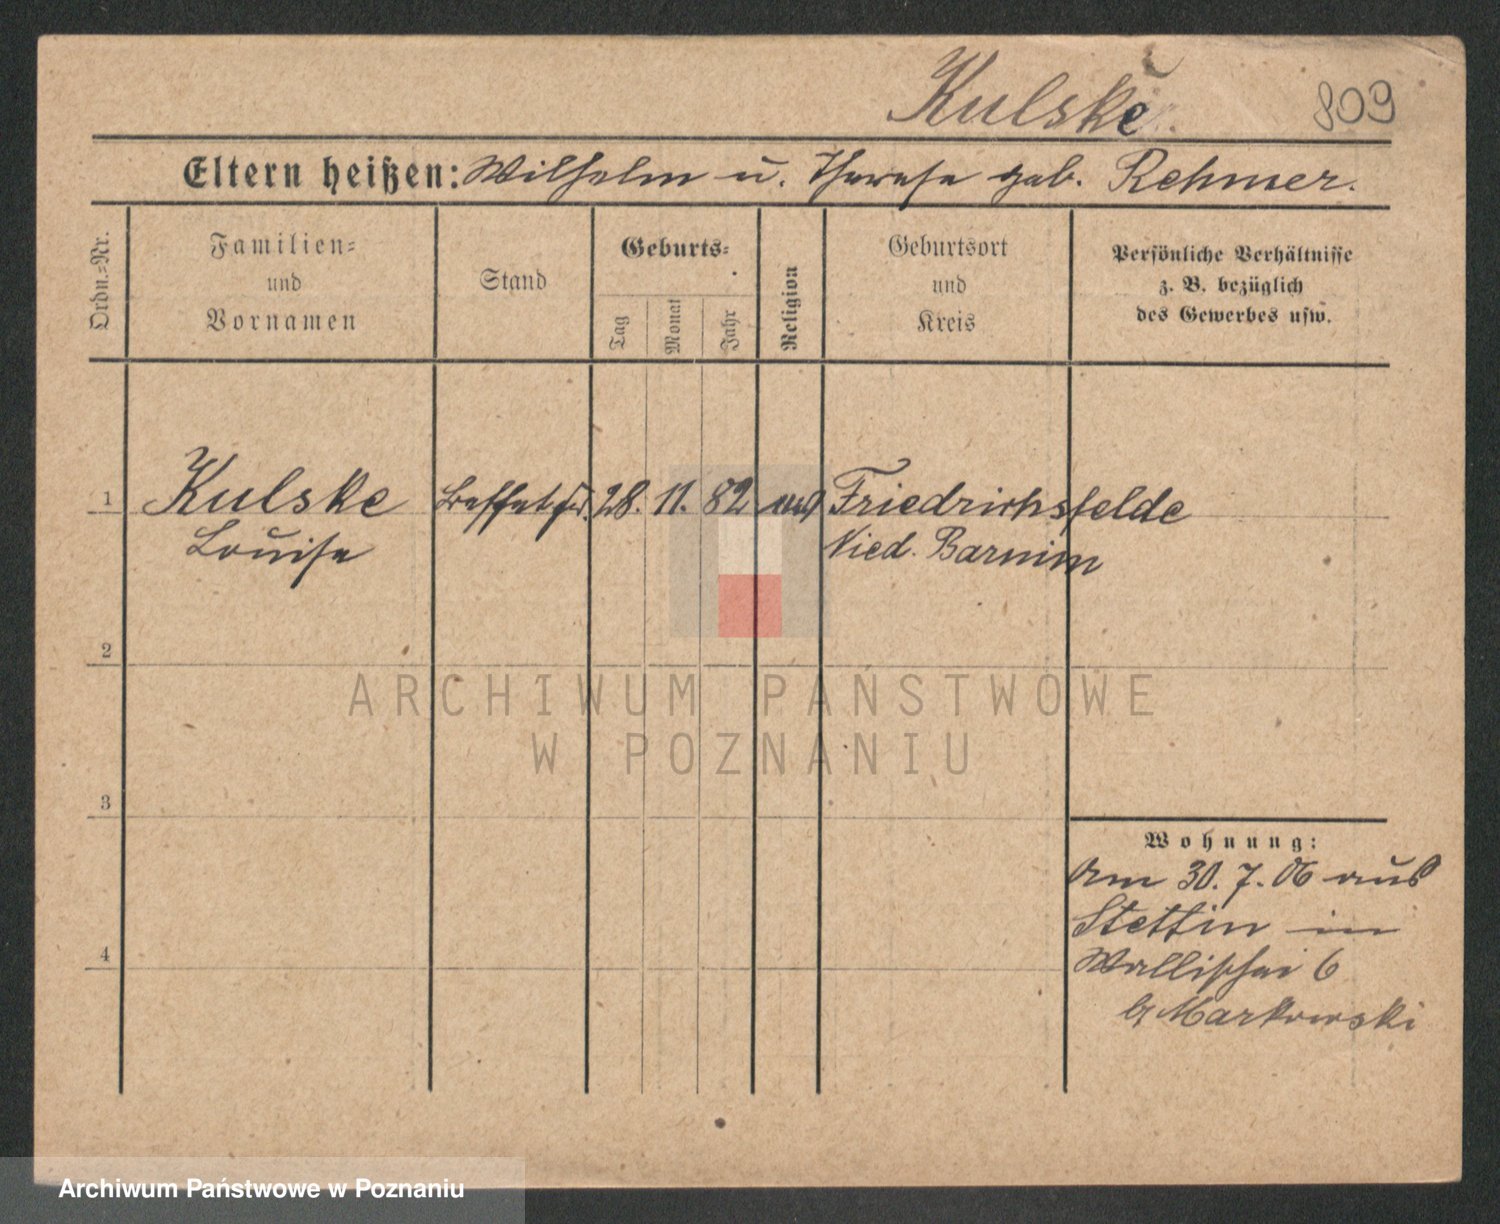 Kulske.
809
Eltern heißen: Wilhelm u. Therese geb. Rehmer.
Ordn.-Nr.
Familien- und Vornamen
Stand
Geburts-
Tag
Monat
Jahr
Religion
Geburtsort und Kreis
Persönliche Verhältnisse
z. B. bezüglich
des Gewerbes usw.
1 Kulske 28. 11. 82 Friedrichsfelde
Louise Nied. Barnim
2
ARCHIWUM PAŃSTWOWE
W POZNANIU
3
Wohnung:
Am 30. 7. 06 aus
Stettin in
4 Wallischei 6
b/ Markowski
Archiwum Państwowe w Poznaniu